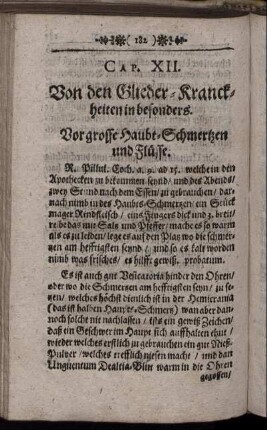 182
CAP. XII.
Von den Glieder-Kranck-
heiten in besonders.
Vor grosse Haubt-Schmertzen
und Flüsse.
R. Pillul. Coch. a. g. ad 15. welche in den
Apothecken zu bekommen seynd/ und des Abends/
zwey Stund nach dem Essen/ zu gebrauchen/ dar-
nach nimb in des Haubts-Schmertzen/ ein Stück
mager Rendfleisch/ eins Fingers dick und 2. breit/
reibe das mit Saltz und Pfeffer/ mach es so warm
als es zu leiden/ lege es auf den Platz wo die schmer-
tzen am hefftigsten seynd/ und so es kalt worden
nimb was frisches/ es hilfft gewiß. probatum.
Es ist auch gut Vesicatoria hinder den Ohren/
oder wo die Schmertzen am hefftigsten seyn/ zu se-
tzen/ welches höchst dienlich ist in der Hemicrania
(das ist halben Haupts-Schmertz) wan aber dan-
noch solche nit nachlassen/ ists ein gewiß Zeichen/
daß ein Geschwer im Haupt sich auffhalten thut/
wieder welches erstlich zu gebrauchen ein gut Nieß-
Pulver/ welches trefflich niesen macht/ und dan
Unguentum Dealtea-Blum warm in die Ohren
gegossen/